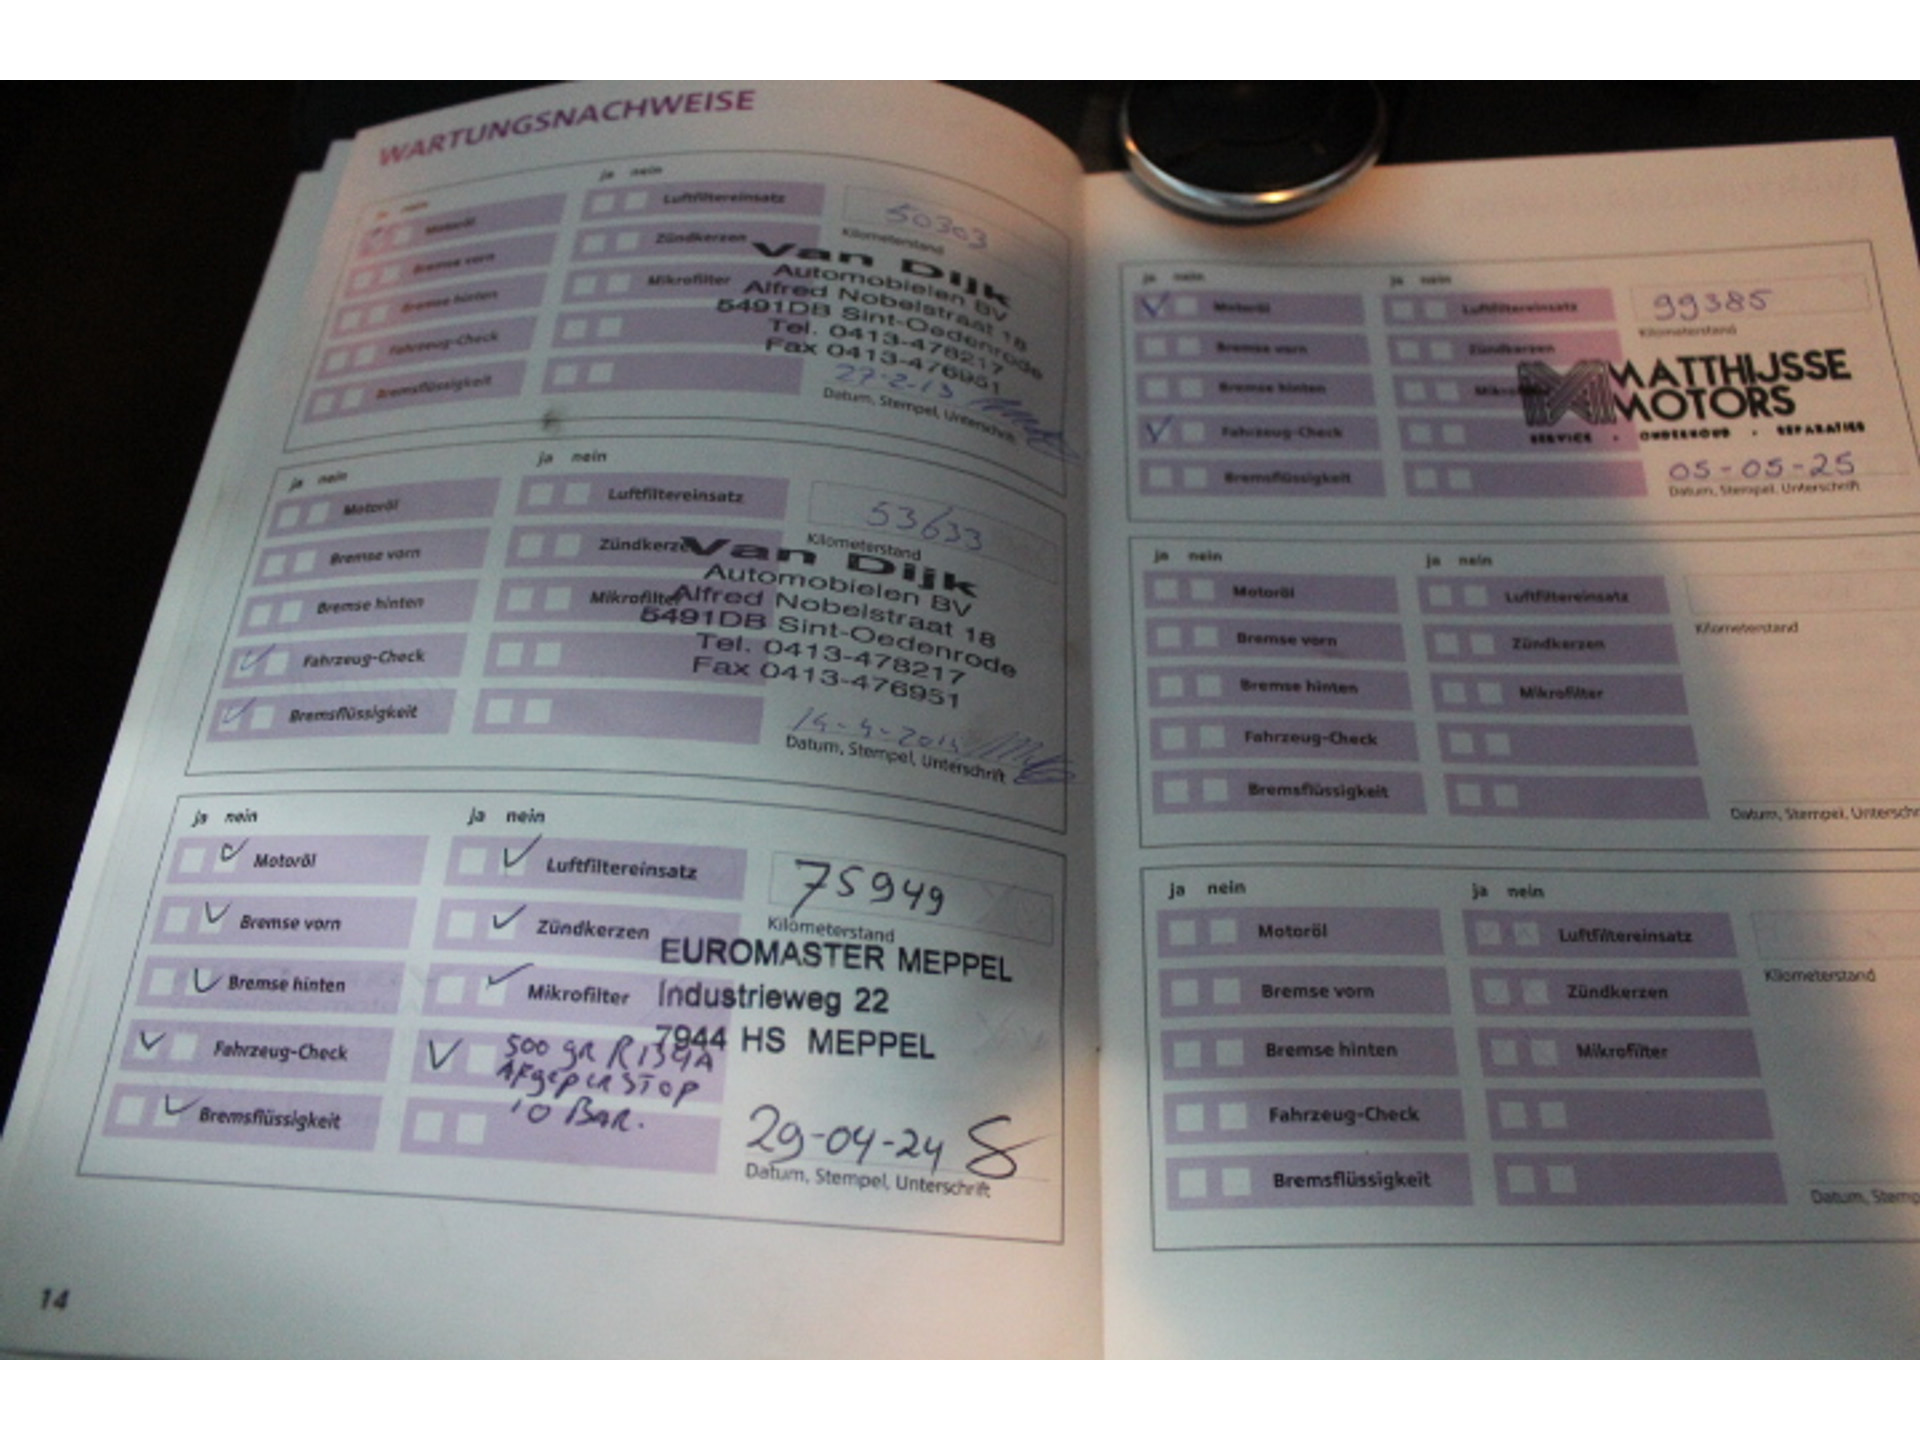 WARTUNGSNACHWEISE
ja nein
Motoröl
Bremse vorn
Bremse hinten
Fahrzeug-Check
Bremsflüssigkeit
ja nein
Luftfiltereinsatz
Zündkerzen
Mikrofilter
50303
Kilometerstand
Van Dijk
Automobielen BV
Alfred Nobelstraat 18
5491DB Sint-Oedenrode
Tel. 0413-478217
Fax 0413-476951
27-2-13
Datum, Stempel, Unterschrift
ja nein
Motoröl
Bremse vorn
Bremse hinten
Fahrzeug-Check
Bremsflüssigkeit
ja nein
Luftfiltereinsatz
Zündkerze
Mikrofilter
53633
Kilometerstand
Van Dijk
Automobielen BV
Alfred Nobelstraat 18
5491DB Sint-Oedenrode
Tel. 0413-478217
Fax 0413-476951
Datum, Stempel, Unterschrift
ja nein
Motoröl
Bremse vorn
Bremse hinten
Fahrzeug-Check
Bremsflüssigkeit
ja nein
Luftfiltereinsatz
Zündkerzen
Mikrofilter
500 gR R134A
AFgePERSTOP
10 BAR.
75949
Kilometerstand
EUROMASTER MEPPEL
Industrieweg 22
7944 HS MEPPEL
29-04-24
Datum, Stempel, Unterschrift
14
ja nein
Motoröl
Bremse vorn
Bremse hinten
Fahrzeug-Check
Bremsflüssigkeit
ja nein
Luftfiltereinsatz
Zündkerzen
Mikro
99385
Kilometerstand
MATTHIJSSE
MOTORS
SERVICE • ONDERHOUD • REPARATIES
05-05-25
Datum, Stempel, Unterschrift
ja nein
Motoröl
Bremse vorn
Bremse hinten
Fahrzeug-Check
Bremsflüssigkeit
ja nein
Luftfiltereinsatz
Zündkerzen
Mikrofilter
Kilometerstand
Datum, Stempel, Unterschr
ja nein
Motoröl
Bremse vorn
Bremse hinten
Fahrzeug-Check
Bremsflüssigkeit
ja nein
Luftfiltereinsatz
Zündkerzen
Mikrofilter
Kilometerstand
Datum, Stemp